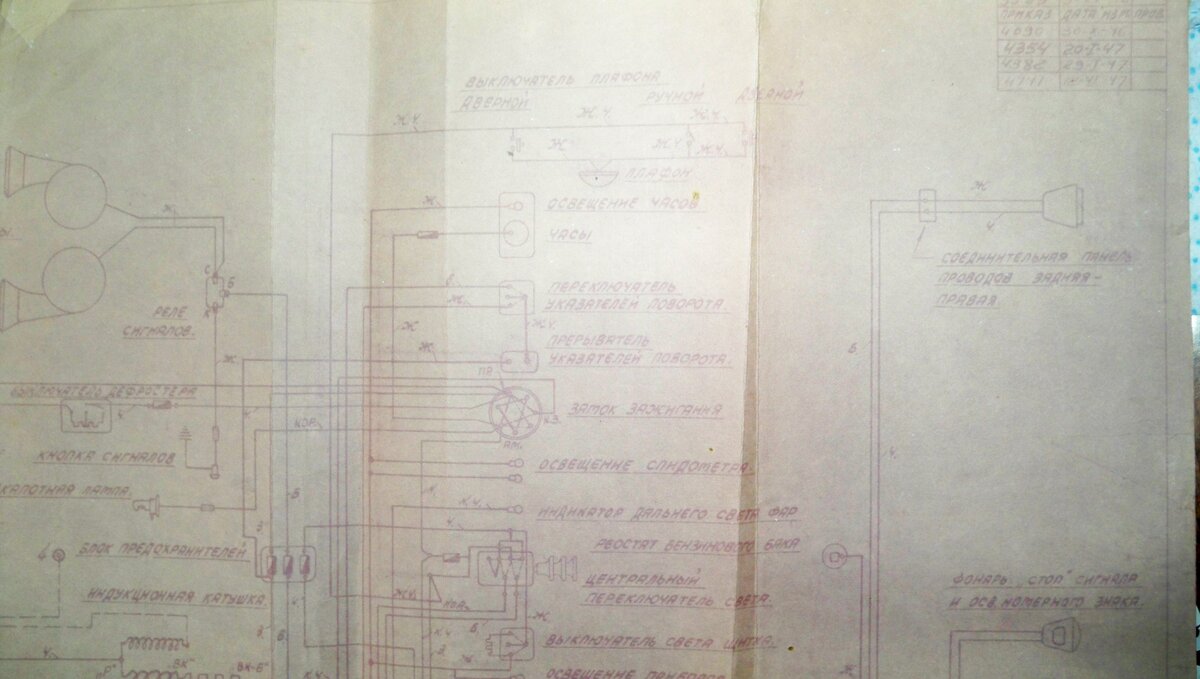 ПРИКАЗ ДАТА ИЗМ. ПРОВ.
4090
4354 20-I-47
4382 29.I.47
ВЫКЛЮЧАТЕЛЬ ПЛАФОНА
ДВЕРНОЙ РУЧНОЙ ДВЕРНОЙ
Ж.Ч. Ж.Ч. Ж.Ч.
Ж Ж.Ч. Ж.Ч.
ПЛАФОН
Ж
ОСВЕЩЕНИЕ ЧАСОВ
ЧАСЫ
Ж
Ж
Ч
СОЕДИНИТЕЛЬНАЯ ПАНЕЛЬ
ПРОВОДОВ ЗАДНЯЯ-
ПРАВАЯ.
С
Б
К
РЕЛЕ
СИГНАЛОВ.
Б
Ж.
ПЕРЕКЛЮЧАТЕЛЬ
УКАЗАТЕЛЕЙ ПОВОРОТА.
Ж
Ж.Ч.
ПРЕРЫВАТЕЛЬ
УКАЗАТЕЛЕЙ ПОВОРОТА.
Ж
Ж
Б.
ПР.
ВЫКЛЮЧАТЕЛЬ ДЕФРОСТЕРА
Ч
КОР.
К.З.
АМ.
ЗАМОК ЗАЖИГАНИЯ
КНОПКА СИГНАЛОВ
ОСВЕЩЕНИЕ СПИДОМЕТРА.
Ч.
КАПОТНАЯ ЛАМПА.
К.Ч.
ИНДИКАТОР ДАЛЬНЕГО СВЕТА ФАР
Ч.
РЕОСТАТ БЕНЗИНОВОГО БАКА
БЛОК ПРЕДОХРАНИТЕЛЕЙ
ЦЕНТРАЛЬНЫЙ
ПЕРЕКЛЮЧАТЕЛЬ СВЕТА.
ФОНАРЬ „СТОП" СИГНАЛА
И ОСВ. НОМЕРНОГО ЗНАКА.
ИНДУКЦИОННАЯ КАТУШКА.
КОР.
Ж
Б.
К.Ч.
ВЫКЛЮЧАТЕЛЬ СВЕТА ЩИТКА.
Ч
"ВК"
"ВК-Б"
"Р"
ОСВЕЩЕНИЕ ПРИБОРОВ
Ж